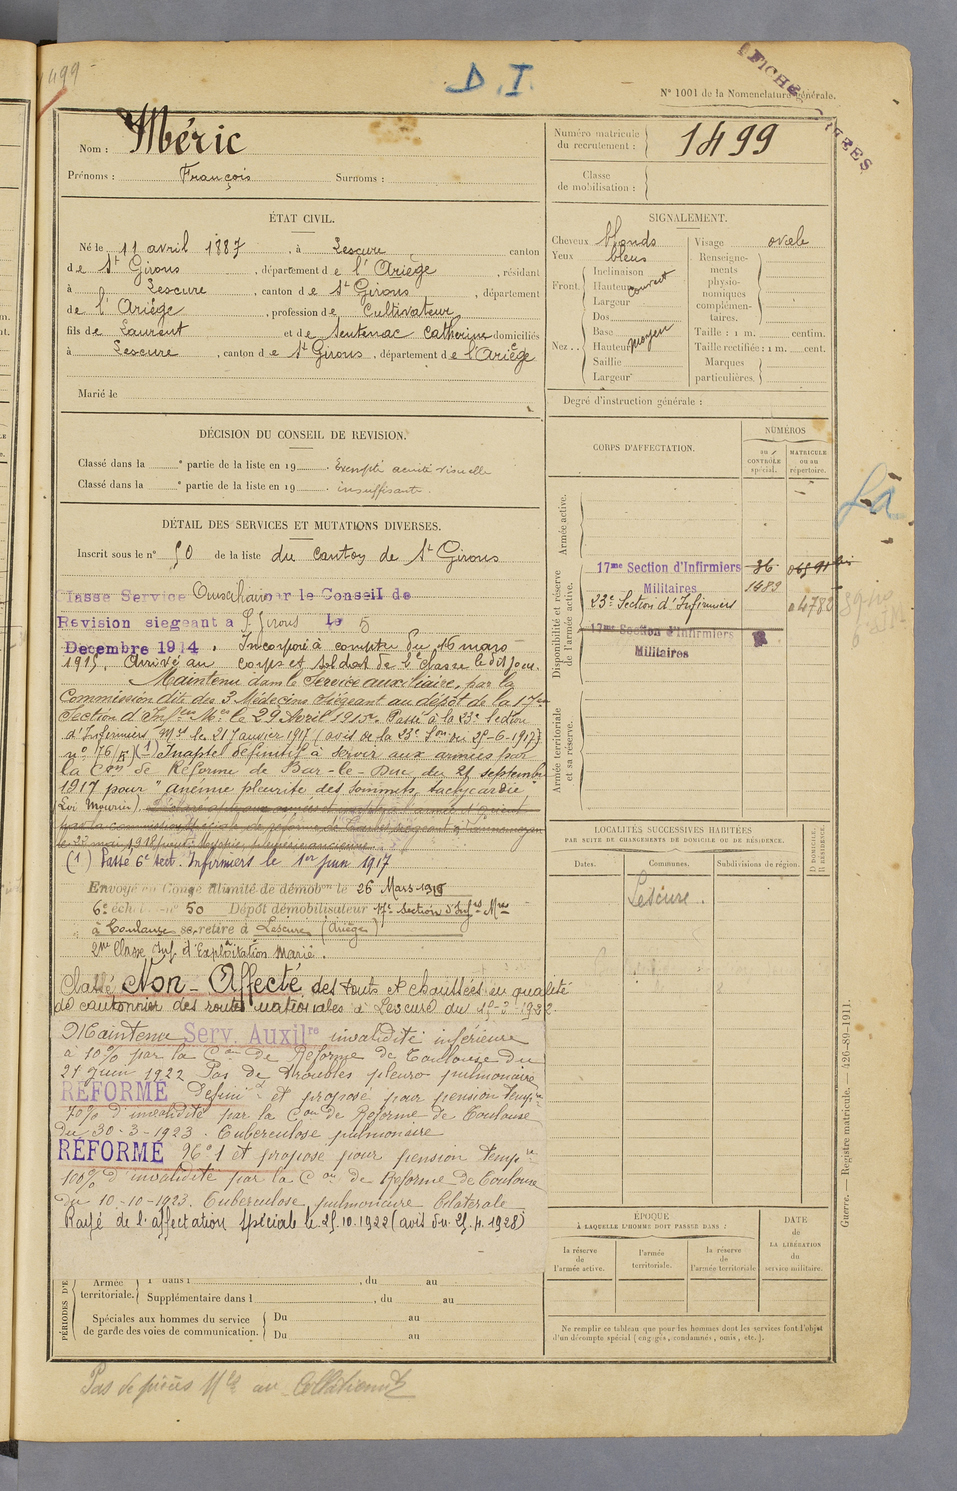 499
D.I.
N° 1001 de la Nomenclature générale.
Nom : Méric
Prénoms : François Surnoms :
Numéro matricule du recrutement : 1499
Classe de mobilisation :
ÉTAT CIVIL.
Né le 11 avril 1887, à Lescure canton
de St Girons, département de l'Ariège, résidant
à Lescure, canton de St Girons, département
de l'Ariège, profession de Cultivateur
fils de Laurent et de Sentenac Catherine domiciliés
à Lescure, canton de St Girons, département de l'Ariège
Marié le
SIGNALEMENT.
Cheveux blonds
Yeux bleus
Front Inclinaison
Hauteur couvert
Largeur
Nez Dos
Base
Hauteur moyen
Saillie
Largeur
Visage ovale
Renseignements physionomiques complémentaires.
Taille : 1 m. centim.
Taille rectifiée : 1 m. cent.
Marques particulières.
Degré d'instruction générale :
DÉCISION DU CONSEIL DE REVISION.
Classé dans la ° partie de la liste en 19 . Exempté acuité visuelle
Classé dans la ° partie de la liste en 19 . insuffisante.
DÉTAIL DES SERVICES ET MUTATIONS DIVERSES.
Inscrit sous le n° 50 de la liste du canton de St Girons
Classe Service Auxiliaire par le Conseil de
Revision siegeant a St Girons le 5
Decembre 1914. Incorporé à compter du 16 mars
1915. Arrivé au corps et soldat de 2e classe le dit jour.
Maintenu dans le Service auxiliaire, par la
Commission dite des 3 Médecins siégeant au dépôt de la 17me
Section d'Infers Mres le 29 Avril 1915. Passé à la 23e Section
d'Infirmiers Mres le 21 Janvier 1917 (avis de la 23e Son du 25-6-1917)
n° 76/ (1) Inapte définitif à servir aux armées par
la Con de Réforme de Bar-le-Duc du 21 septembre
1917 pour "anémie pleurite des sommets, tachycardie
(Loi Mourier).
(1) Passé 6e Sect. Infirmiers le 1er juin 1917
Envoyé en Congé illimité de démobon le 26 Mars 1919
6e échelon n° 50 Dépôt démobilisateur 17e Section d'Infrs Mres
à Toulouse se retire à Lescure (Ariège)
2me Classe Inf. d'Exploitation Marié.
Classé Non-Affecté des Ponts et chaussées en qualité
de cantonnier des routes nationales à Lescure du
Maintenu Serv. Auxilre invalidité inférieure
à 10% par la Con de Réforme de Toulouse du
21 Juin 1922 Pas de troubles pleuro-pulmonaires
RÉFORMÉ Définif et proposé pour pension tempre
70% d'invalidité par la Con de Réforme de Toulouse
du 30-3-1923. Tuberculose pulmonaire
RÉFORMÉ N° 1 et proposé pour pension tempre
100% d'invalidité par la Con de Réforme de Toulouse
du 10-10-1923. Tuberculose pulmonaire bilatérale
Rayé de l'affectation spéciale le 25.10.1922 (avis du 25.4.1928)
CORPS D'AFFECTATION.
NUMÉROS
au CONTRÔLE spécial.
MATRICULE ou au répertoire.
Armée active.
Disponibilité et réserve de l'armée active.
17me Section d'Infirmiers 36
Militaires 1483
23e Section d'Infirmiers 04782
17me Section d'Infirmiers
Militaires
Armée territoriale et sa réserve.
LOCALITÉS SUCCESSIVES HABITÉES
PAR SUITE DE CHANGEMENTS DE DOMICILE OU DE RÉSIDENCE.
Dates. Communes. Subdivisions de région. D DOMICILE. R RÉSIDENCE.
Lescure.
ÉPOQUE
À LAQUELLE L'HOMME DOIT PASSER DANS :
la réserve de l'armée active.
l'armée territoriale.
la réserve de l'armée territoriale
DATE de LA LIBÉRATION du service militaire.
Ne remplir ce tableau que pour les hommes dont les services font l'objet
d'un décompte spécial (engagés, condamnés, omis, etc.).
PÉRIODES D'E
Armée territoriale. 1 dans l , du au
Supplémentaire dans l , du au
Spéciales aux hommes du service Du au
de garde des voies de communication. Du au
Guerre. — Registre matricule. — 426-89-1911.
Pas de pièces Mles au